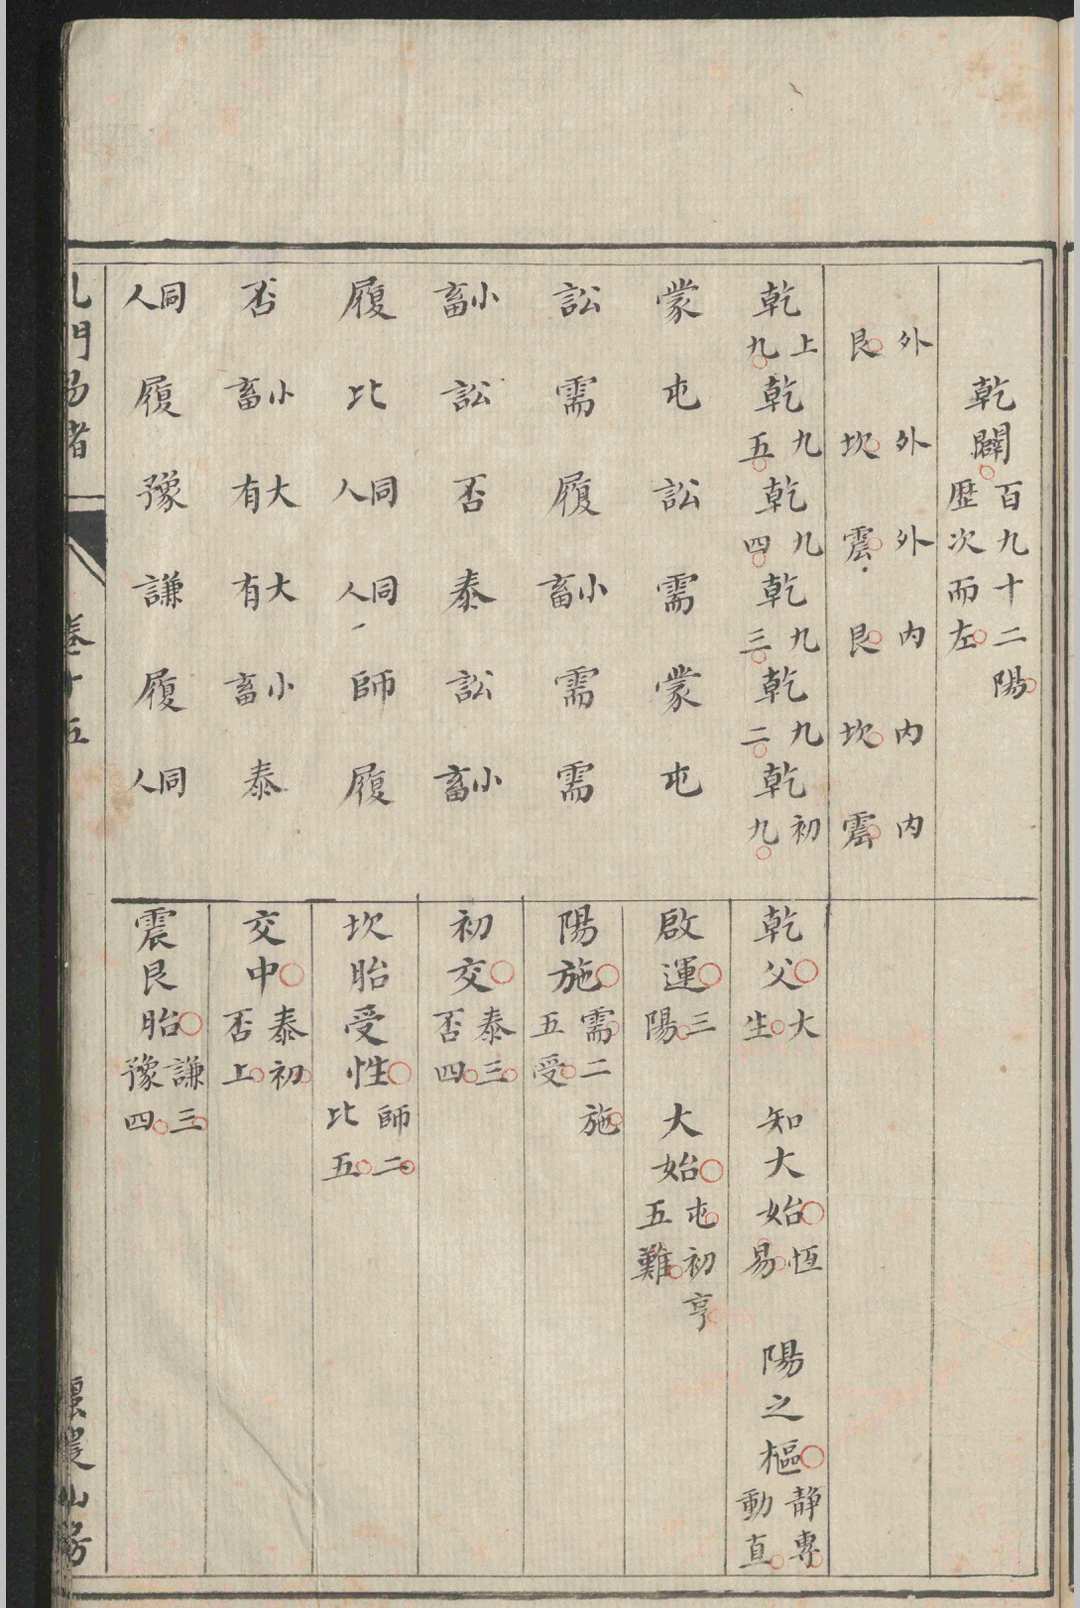 乾闢百九十二陽歷次而左
外艮 外坎 外震 内艮 内坎 内震
乾上九 乾九五 乾九四 乾九三 乾九二 乾初九
乾父大生 知大始恆易 陽之樞靜專動直
蒙 屯 訟 需 蒙 屯
啟運三陽 大始屯初亨五難
訟 需 履 小畜 需 需
陽施需二施五受
小畜 訟 否 泰 訟 小畜
初交泰三否四
履 比 同人 同人 師 履
坎胎受性師二比五
否 小畜 大有 大有 小畜 泰
交中泰初否上
同人 履 豫 謙 履 同人
震艮胎謙三豫四
卷十五